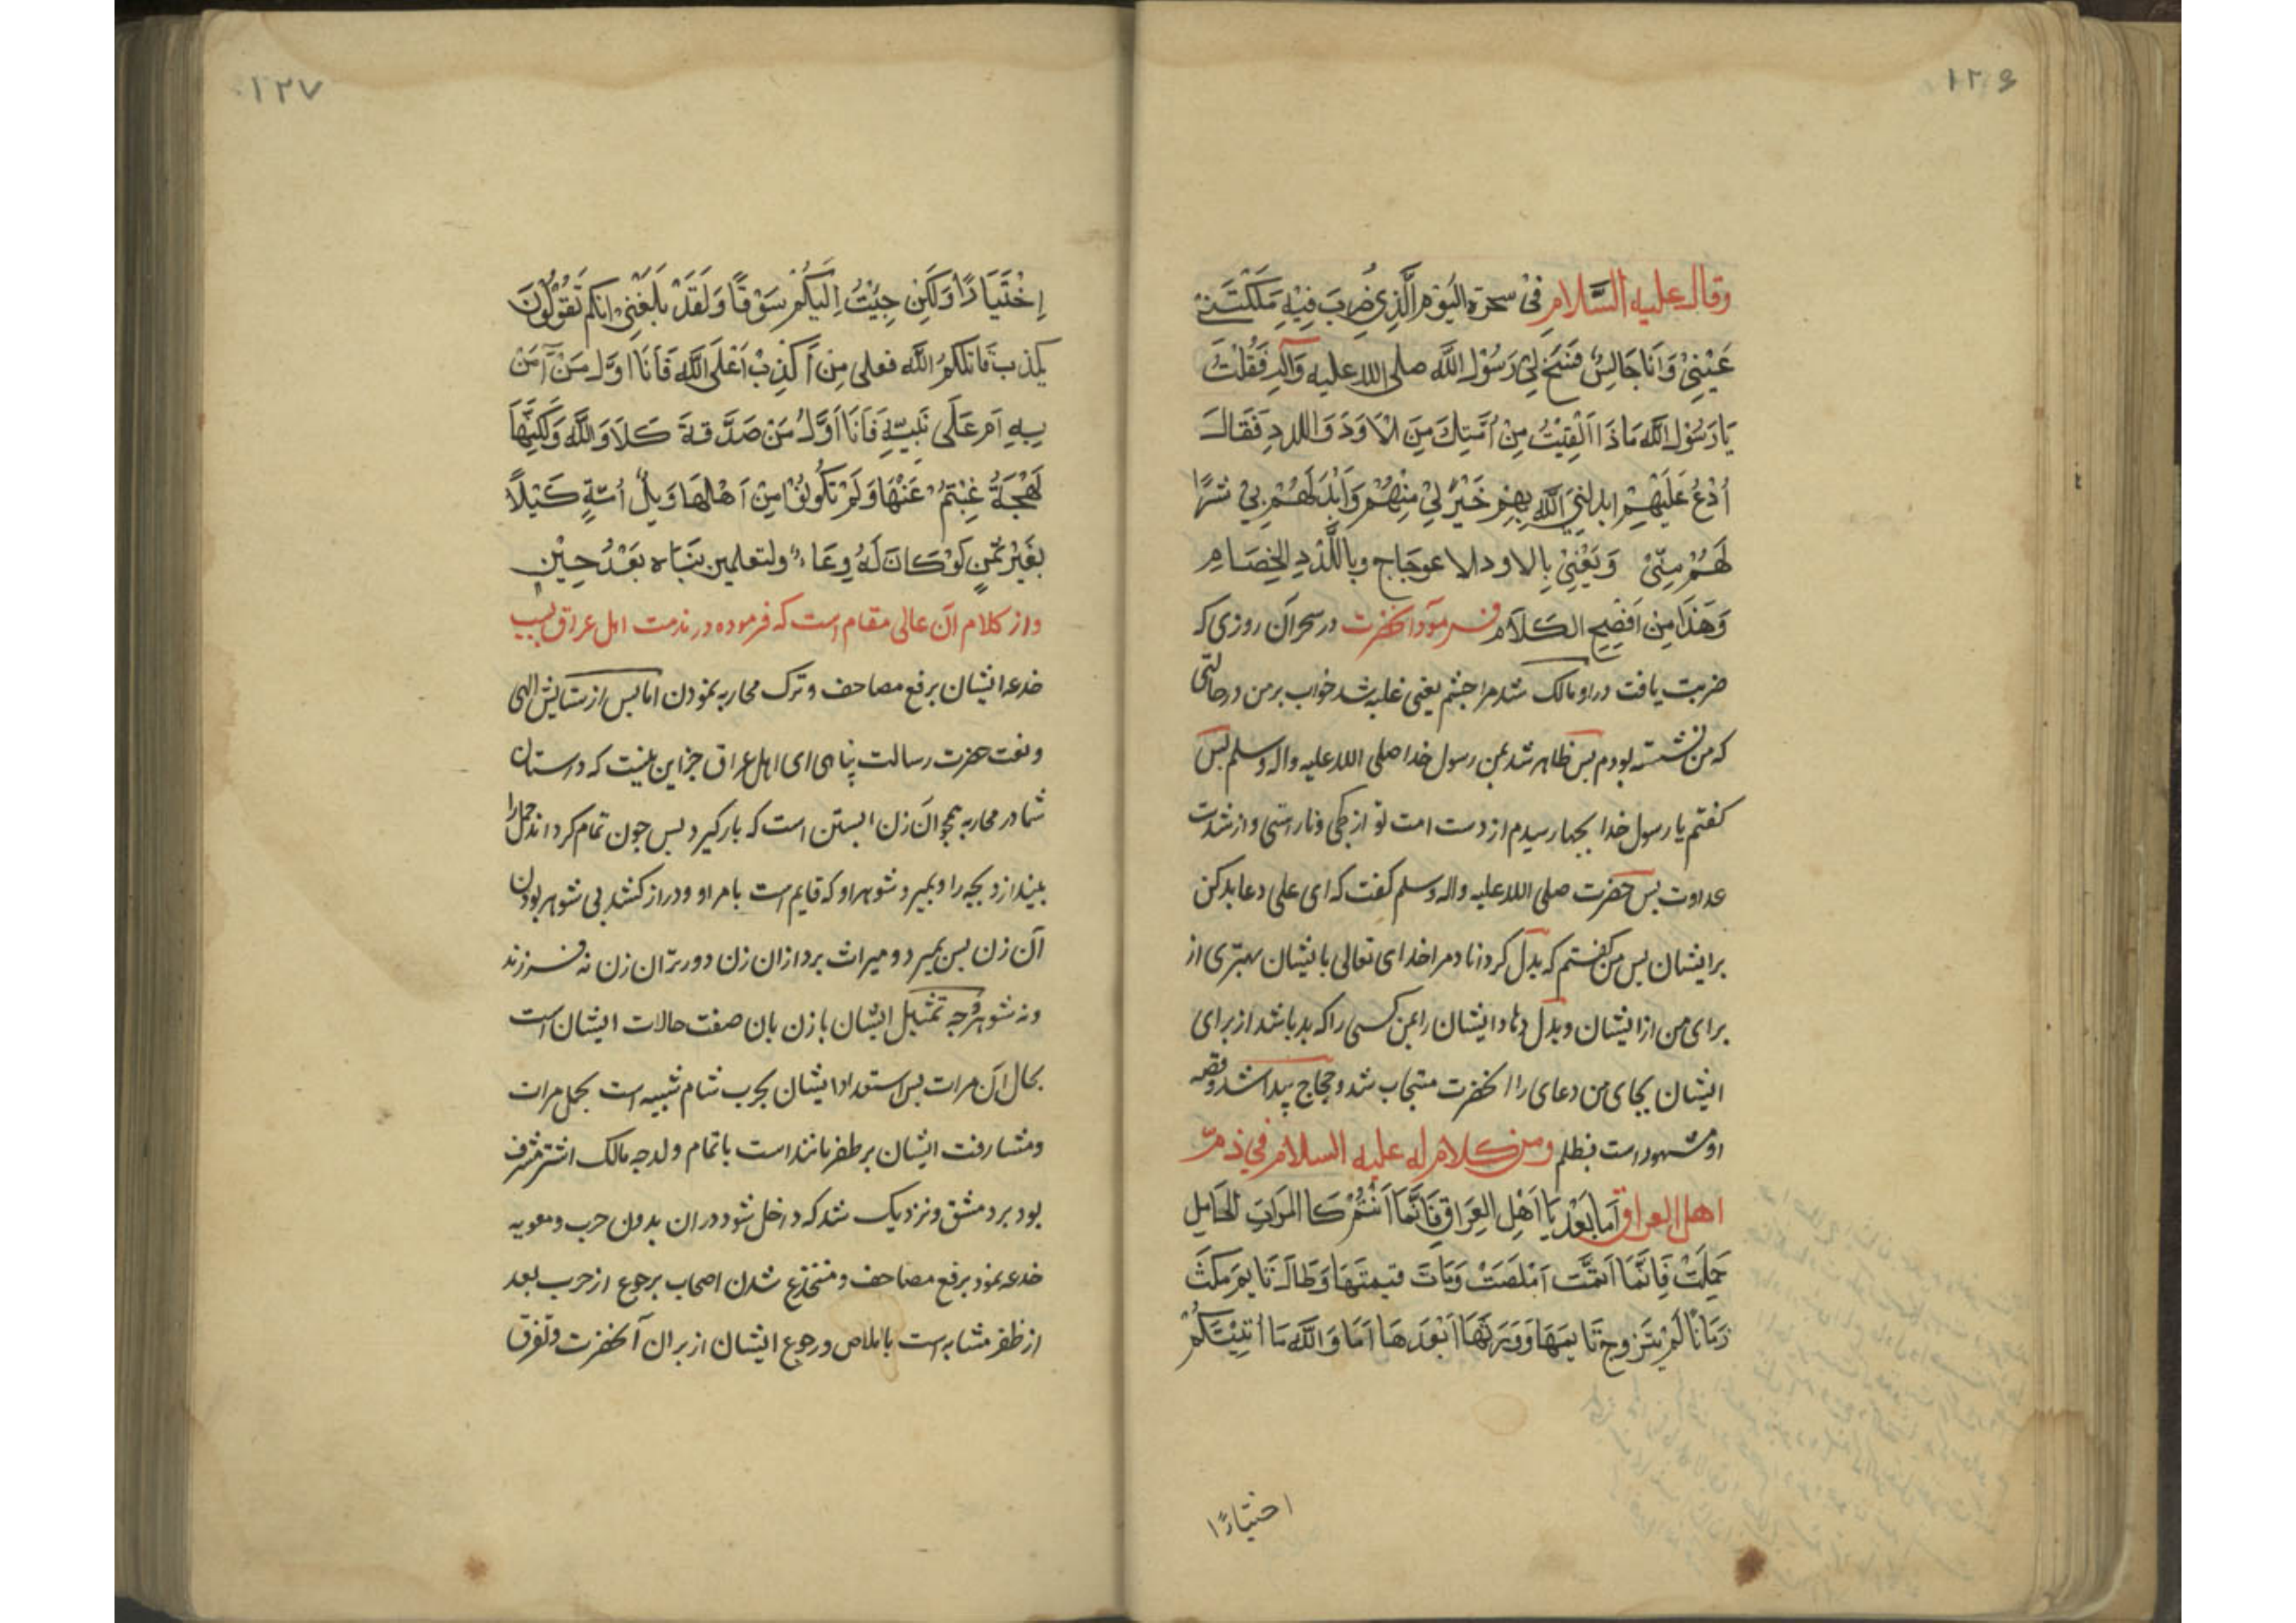 ١٢۶
وقال علیه السَّلامِ فی سحرة الیَوْمِ الَّذِی ضُرِبَ فِیْهِ مَلَکَتْنِیْ
عَیْنِیْ وَاَنَا جَالِسٌ فَسَنَحَ لِیْ رَسُوْلُ اللَّه صلی الله علیه وَآله فَقُلْتُ
یَا رَسُوْلَ اللَّه مَا ذَا اَلْقِیْتُ مِنْ اُمَّتِكَ مِنَ الْاَوَدَ وَاللدد فَقَالَ
اُدْعُ عَلَیْهِمْ ابدلنِیَ اللَّه بِهِمْ خَیْرً لِیْ مِنْهُمْ وَاَبْدَلَهُمْ بِیْ شرًا
لَهُمْ مِنّیْ وَیَعْنِیْ بِالاود الاعوِجَاج وبِاللَّدَدِ الخِصَامِ
وَهَذَا مِنْ اَفْصَحِ الکَلَامِ فرمود آنحضرت در سحر آن روزی که
ضربت یافت دراو مالک شد مرا چشم یعنی غلبه شد خواب بر من در حالتی
که من نشسته بودم بس ظاهر شد بمن رسول خدا صلی الله علیه واله وسلم بس
کفتم یا رسول خدا بجها رسیدم از دست امت تو از کجی وناراستی واز شدت
عداوت بس حضرت صلی الله علیه واله وسلم کفت که ای علی دعا بد کن
بر ایشان بس من کفتم که بدل کرداناد مرا خدای تعالی با یشان بهتری از
برای من از ایشان وبدل دهاد ایشان را بمن کسی را که بد باشد از برای
ایشان بجای من دعای را انحضرت مستجاب شد وحجاج پیدا شد وقصه
او مشهور است بظلم ومن کلام له علیه السلام فی ذمّ
اهل العراق اَما بَعْدُ یَا اَهْلِ العِرَاقِ فَاِنَّمَا اَنْتُمْ کَا المَرَاَتِ الحَامِلِ
حَمَلَتْ فَاِنَّمَا اَتَمَّتَ اَمْلَصَتْ وَمَاتَ قیمتهَا وَطَالَ تَایمَر مکَثَ
زَمَانًا لَمْ یتَزوج تَا یمَهَا وَوَرَثَهَا اَبْعَدَهَا اَمَا وَاللَّه مَا اَتَیْتُکُمْ
اختیارًا
١٢٧
اِخْتَیَارًا وَلَکِنْ جِیْتُ اِلَیْکُمْ سَوْقًا وَلَقَدْ بَلَغَنِیْ انکم تَقُوْلُوْنَ
یکذب قَاتَلکمُ اللَّه فعلی مِن اَکْذِبْ اَعْلَی اللَّه فَاَنَا اوَّل مَنْ آمَنَ
بِهِ اَمْ عَلَی نَبِیّهِ فَاَنَا اَوَّلُ مَنْ صَدَّقهَ کَلَا وَاللَّه وَلَکِنَّهَا
لَهْجَةُ غِبْتُمْ عَنْهَا وَلَمْ تَکُونُوْا مِنْ اَهْلهَا وَیلُ اُمّهِ کَیْلًا
بِغَیْرِ ثَمَنٍ لَوْ کَانَ لَهُ وِعَاءُ ولتعلمن نبَاه بَعْدَ حِیْنٍ
واز کلام ان عالی مقام است که فرموده در مذمت اهل عراق بسبب
خدعه ایشان برفع مصاحف وترک محاربه نمودن اما بس از ستایش الهی
ونعت حضرت رسالت پناهی ای اهل عراق جز این نیست که داستان
شما در محاربه همچو ان زن ابستن است که بار کیرد بس جون تمام کرداند حمل را
بیندازد بچه را وبمیرد شوهر او که قایم است بامر او ودراز کشد بی شوهر بودن
آن زن بس بمیرد ومیراث برد از ان زن دورتر ان زن نه فرزند
ونه شوهر وجه تمثیل ایشان بازن بان صفت حالات ایشان است
بحال ان مرات بس استعداد ایشان بحرب شام شبیه است بحمل مرات
ومشارفت ایشان بر ظفر مانند است باتمام ولد جه مالک اشتر مشرف
بود بر دمشق ونزدیک شد که داخل شود دران بدون حرب ومعویه
خدعه نمود برفع مصاحف ومنخدع شدن اصحاب برجوع از حرب بعد
از ظفر مشابه است باملاص ورجوع ایشان از بر ان آنحضرت وتفرق